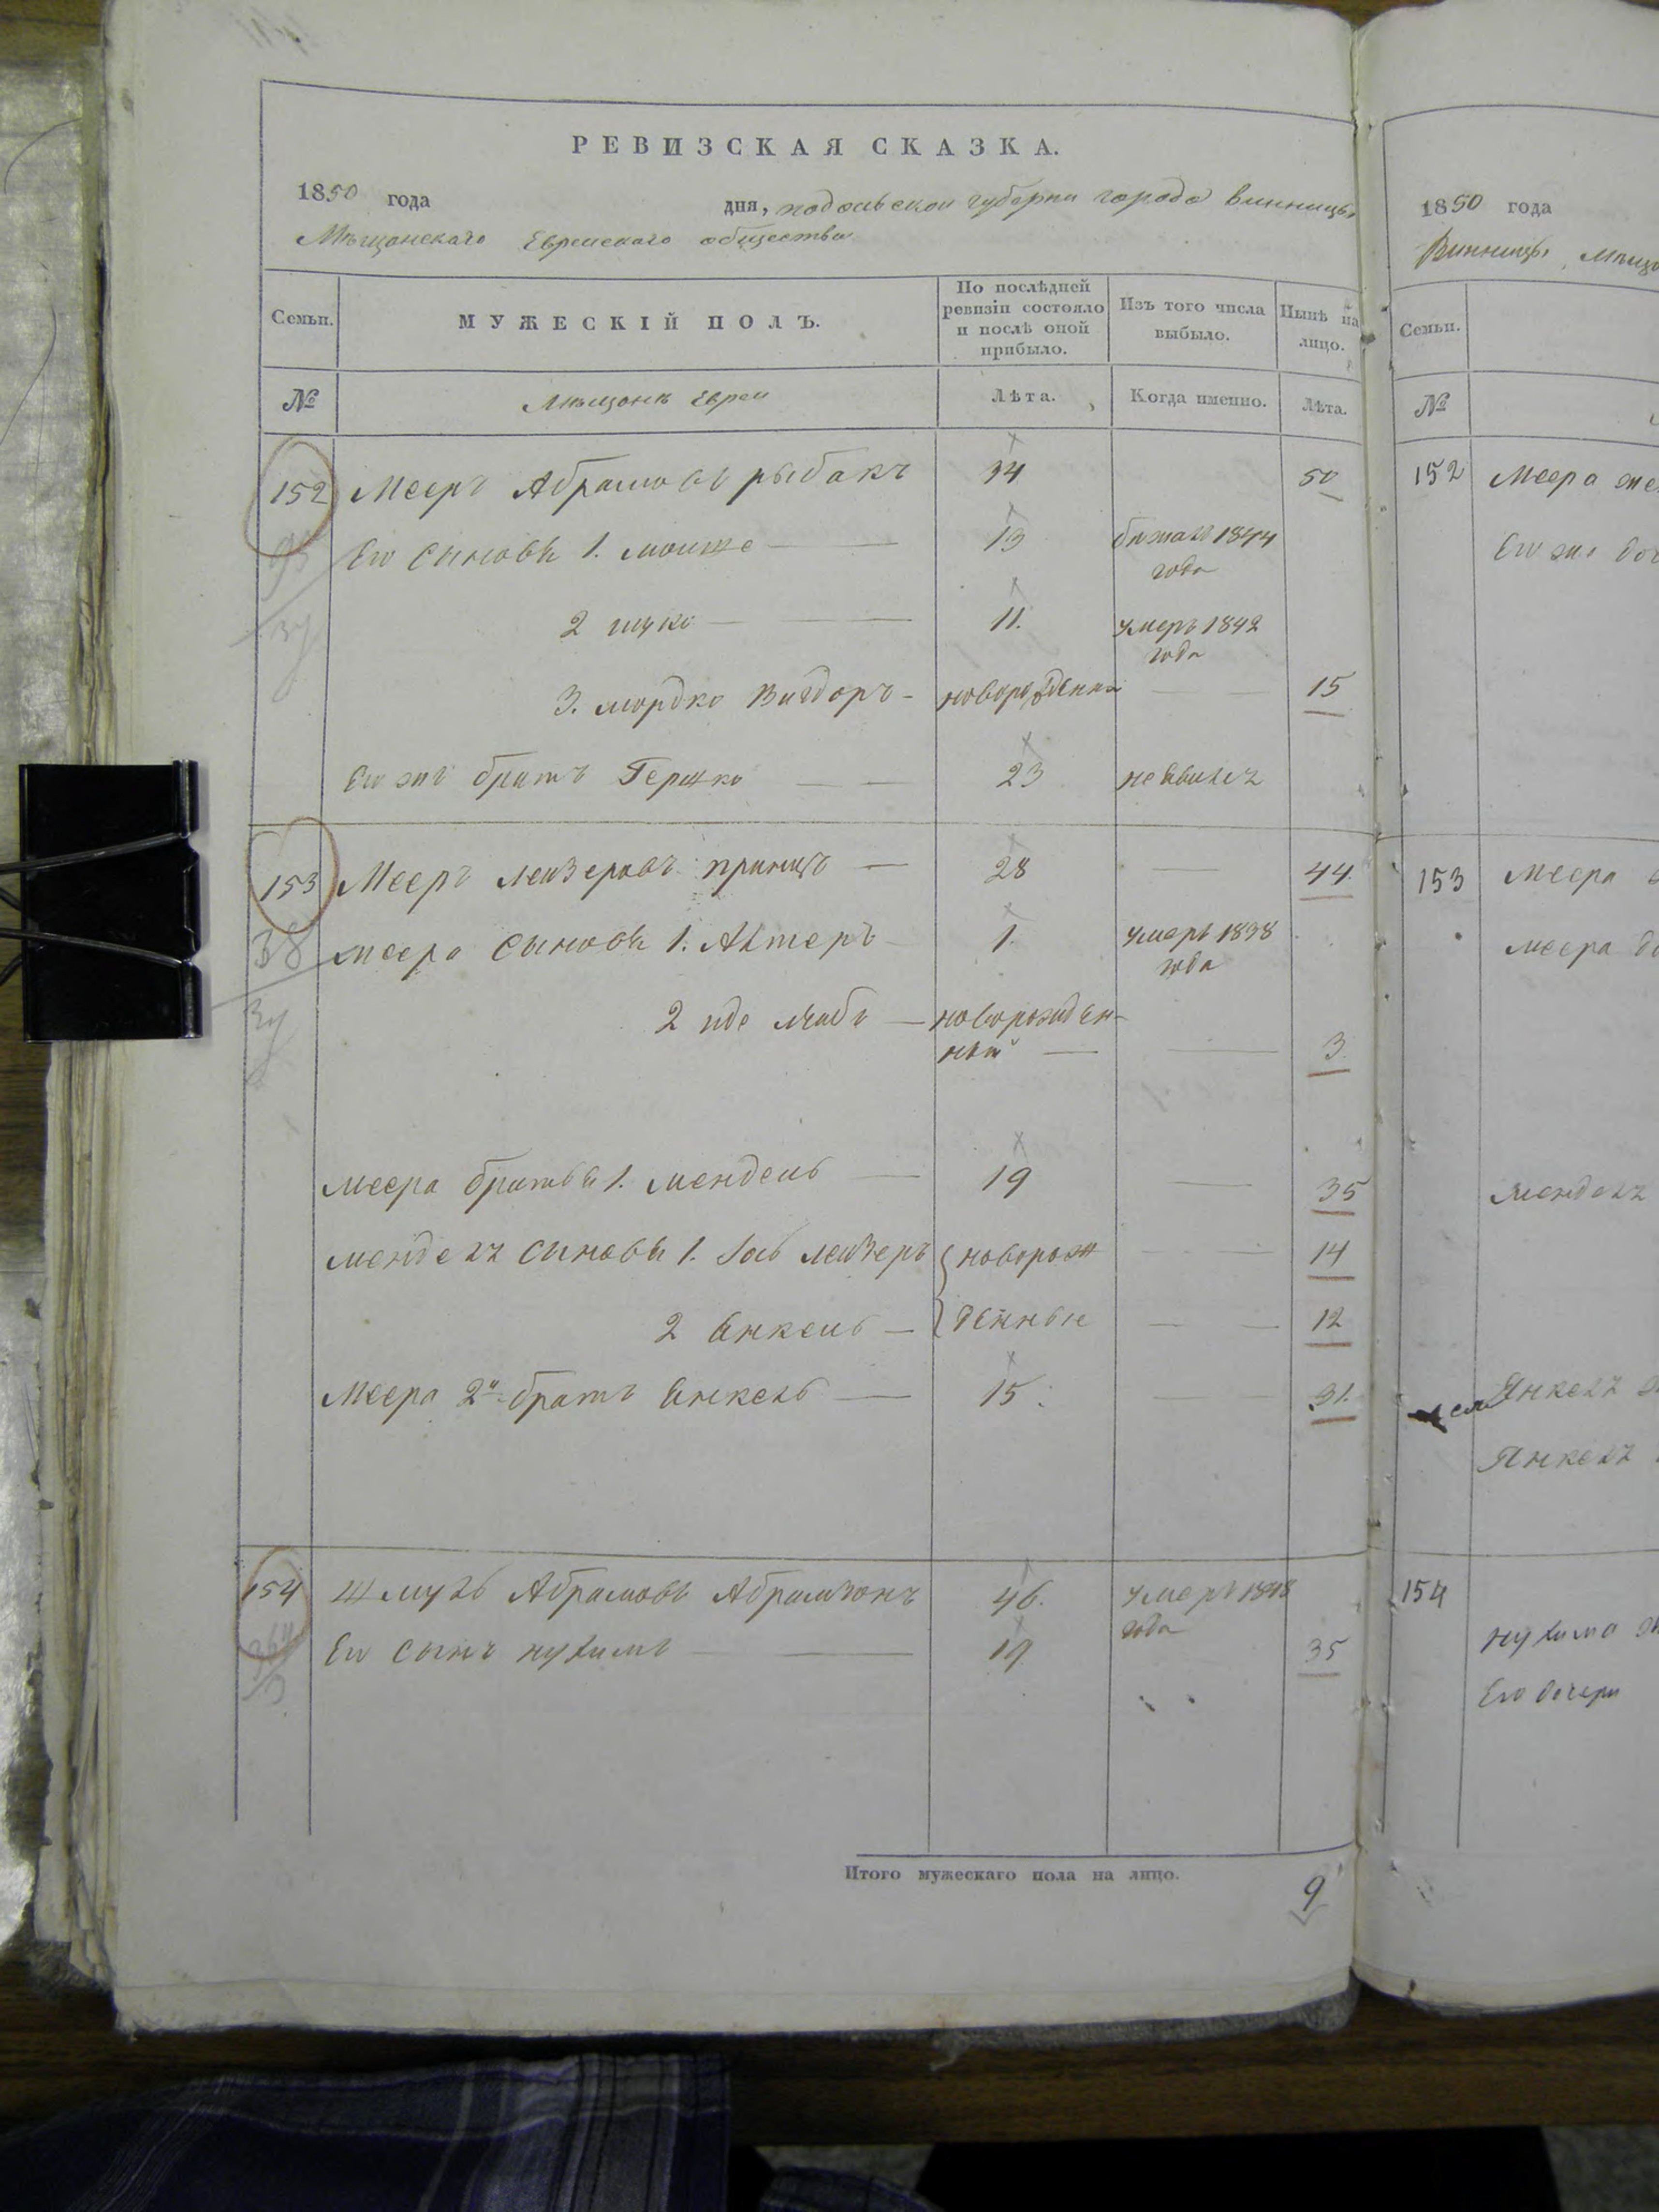 РЕВИЗСКАЯ СКАЗКА.
1850 года дня, подольской губерни города винницы
Мѣщанскаго Еврейскаго общества
Семьи. МУЖЕСКІЙ ПОЛЪ. По послѣдней ревизіи состояло и послѣ оной прибыло. Изъ того числа выбыло. Нынѣ на лицо.
№ Мѣщане Евреи Лѣта. Когда именно. Лѣта.
152 Мееръ Абрамовъ рыбакъ 34 50
Его сыновья 1. мошке 13 бежалъ 1844
года
2 ицко 11. умеръ 1842
года
3. мордко Вигдоръ новорожденны 15
Его же братъ Гершко 23 неявился
153 Мееръ лейзеровъ принцъ 28 44
меера сыновья 1. Алтеръ 1. умеръ 1838
года
2 иде лейбъ новорожден-
ный 3
меера братья 1. мендель 19 35
менделя сыновья 1. лейзеръ новорож 14
2 янкель денные 12
Меера 2й братъ янкель 15 31.
154 Шмуль Абрамовъ Абрамзонъ 46. умеръ 1848
года
Его сынъ нухимъ 19 35
Итого мужескаго пола на лицо.
9
1850 года
Винницы
Семьи.
№
152 Меера
Его же
153 Меера
меера
менделя
Янкеля
Янкеля
154
нухима
Его дочери